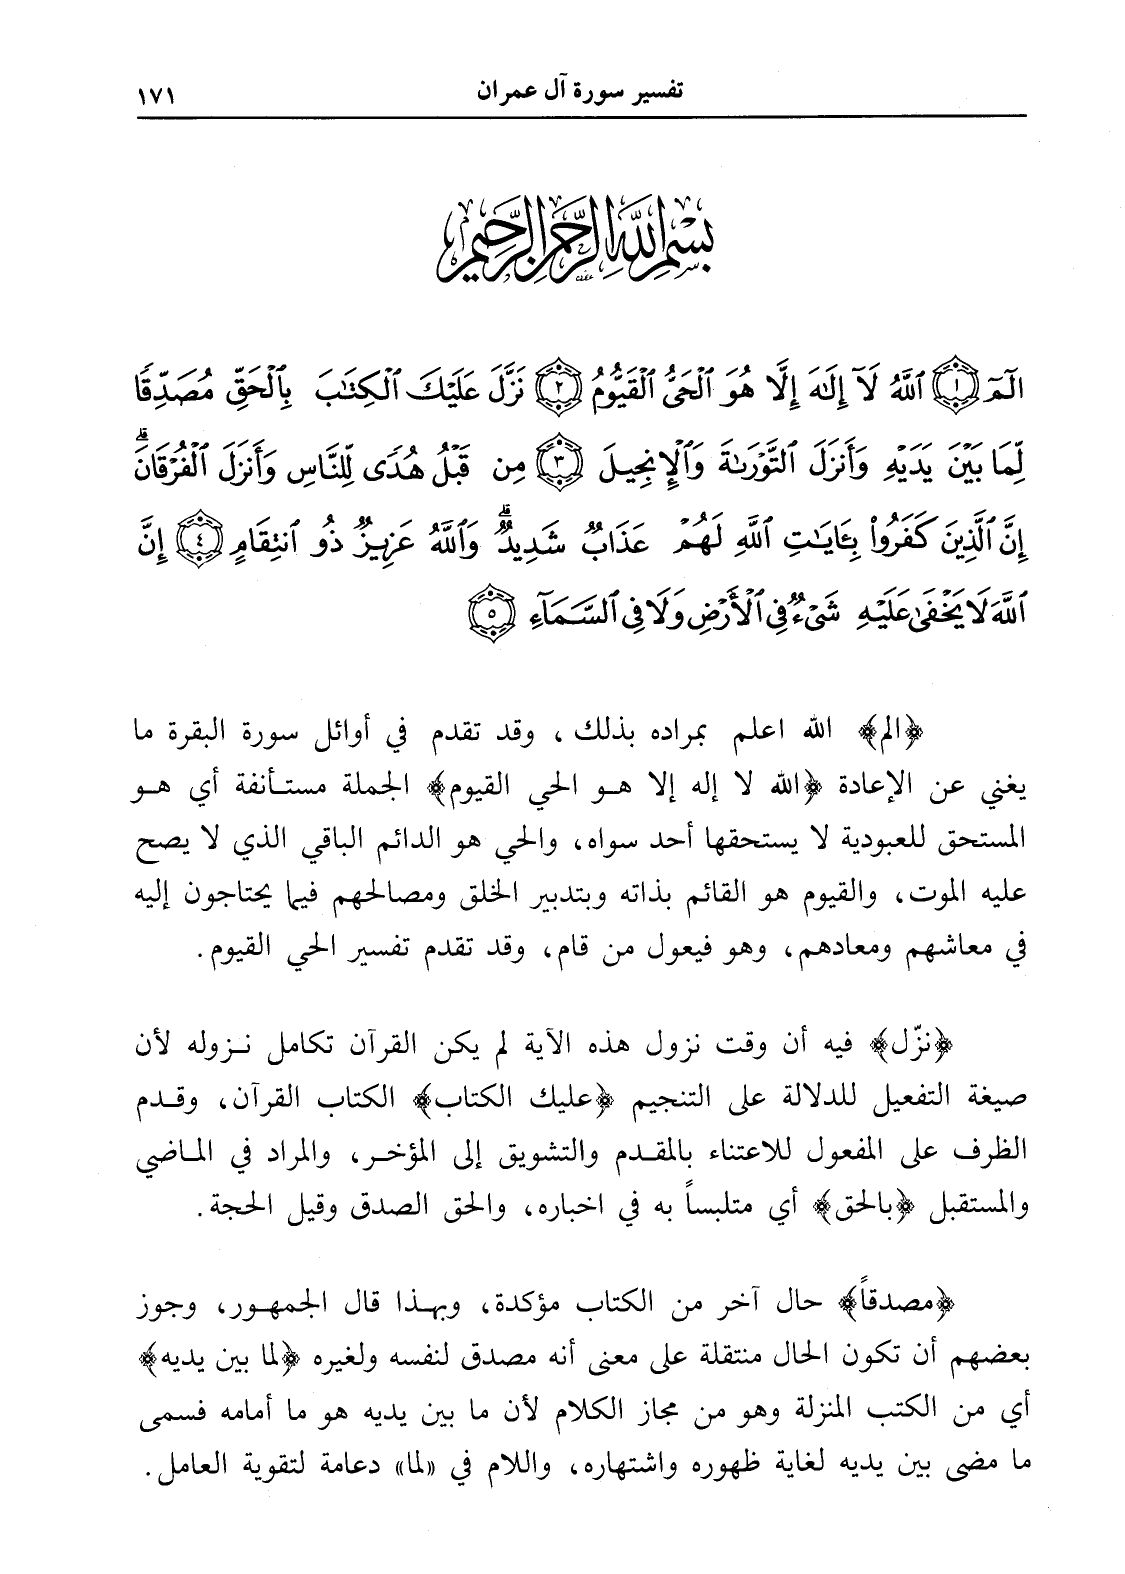 تفسير سورة آل عمران ١٧١
بسم الله الرحمن الرحيم
الٓمٓ ١ ٱللَّهُ لَآ إِلَٰهَ إِلَّا هُوَ ٱلْحَىُّ ٱلْقَيُّومُ ٢ نَزَّلَ عَلَيْكَ ٱلْكِتَٰبَ بِٱلْحَقِّ مُصَدِّقًا
لِّمَا بَيْنَ يَدَيْهِ وَأَنزَلَ ٱلتَّوْرَىٰةَ وَٱلْإِنجِيلَ ٣ مِن قَبْلُ هُدًى لِّلنَّاسِ وَأَنزَلَ ٱلْفُرْقَانَ ۗ
إِنَّ ٱلَّذِينَ كَفَرُوا۟ بِـَٔايَٰتِ ٱللَّهِ لَهُمْ عَذَابٌ شَدِيدٌ ۗ وَٱللَّهُ عَزِيزٌ ذُو ٱنتِقَامٍ ٤ إِنَّ
ٱللَّهَ لَا يَخْفَىٰ عَلَيْهِ شَىْءٌ فِى ٱلْأَرْضِ وَلَا فِى ٱلسَّمَآءِ ٥
﴿الم﴾ الله اعلم بمراده بذلك، وقد تقدم في أوائل سورة البقرة ما
يغني عن الإعادة ﴿الله لا إله إلا هو الحي القيوم﴾ الجملة مستأنفة أي هو
المستحق للعبودية لا يستحقها أحد سواه، والحي هو الدائم الباقي الذي لا يصح
عليه الموت، والقيوم هو القائم بذاته وبتدبير الخلق ومصالحهم فيما يحتاجون إليه
في معاشهم ومعادهم، وهو فيعول من قام، وقد تقدم تفسير الحي القيوم.
﴿نزّل﴾ فيه أن وقت نزول هذه الآية لم يكن القرآن تكامل نزوله لأن
صيغة التفعيل للدلالة على التنجيم ﴿عليك الكتاب﴾ الكتاب القرآن، وقدم
الظرف على المفعول للاعتناء بالمقدم والتشويق إلى المؤخر، والمراد في الماضي
والمستقبل ﴿بالحق﴾ أي متلبساً به في اخباره، والحق الصدق وقيل الحجة.
﴿مصدقاً﴾ حال آخر من الكتاب مؤكدة، وبهذا قال الجمهور، وجوز
بعضهم أن تكون الحال منتقلة على معنى أنه مصدق لنفسه ولغيره ﴿لما بين يديه﴾
أي من الكتب المنزلة وهو من مجاز الكلام لأن ما بين يديه هو ما أمامه فسمى
ما مضى بين يديه لغاية ظهوره واشتهاره، واللام في «لما» دعامة لتقوية العامل.